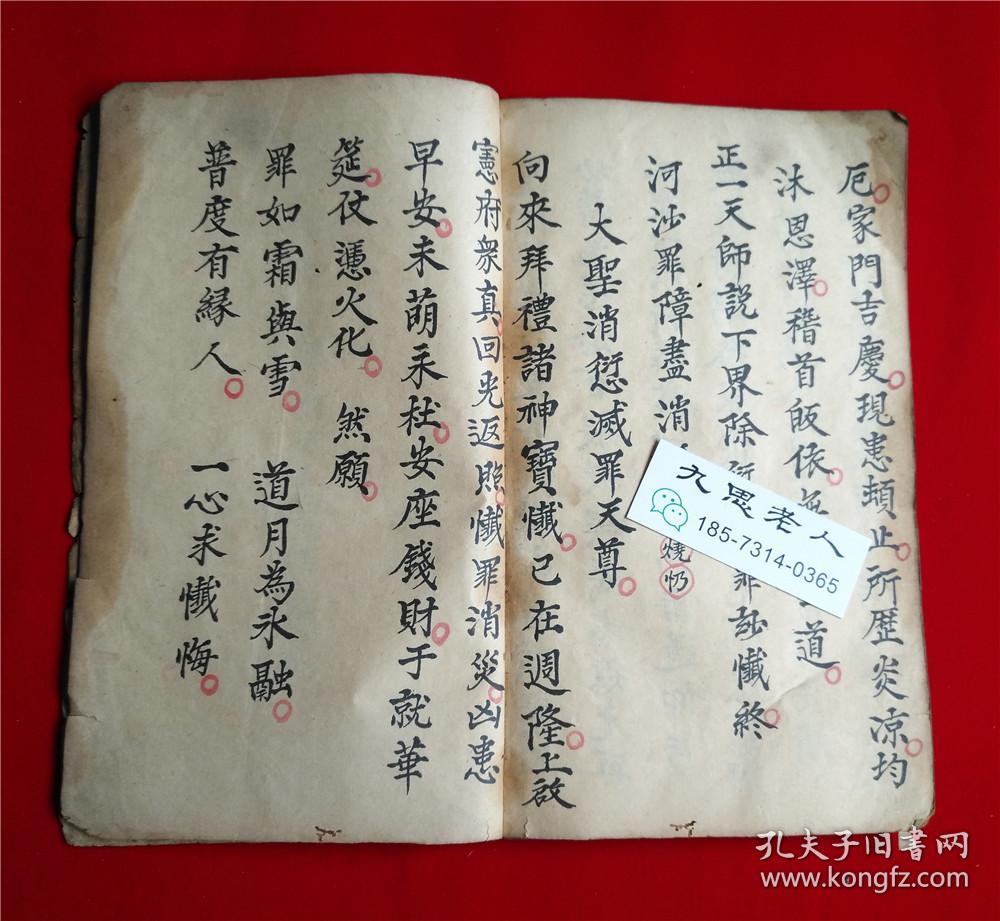 厄。家門吉慶。現患頓止。所歷炎凉。均
沐恩澤。稽首皈依。無道。
正一天師説下界除罪訟懺終。
河沙罪障盡消
燒
大聖消愆滅罪天尊。
向來拜禮諸神寶懺。已在週隆。上啟
憲府衆真。回光返照。懺罪消災。凶患
早安。未萌禾杜。安座錢財。于就華
筵。伏憑火化。然願。
罪如霜與雪。 道月為氷融。
普度有緣人。 一心求懺悔。
九思老人
185-7314-0365
孔夫子旧书网
www.kongfz.com